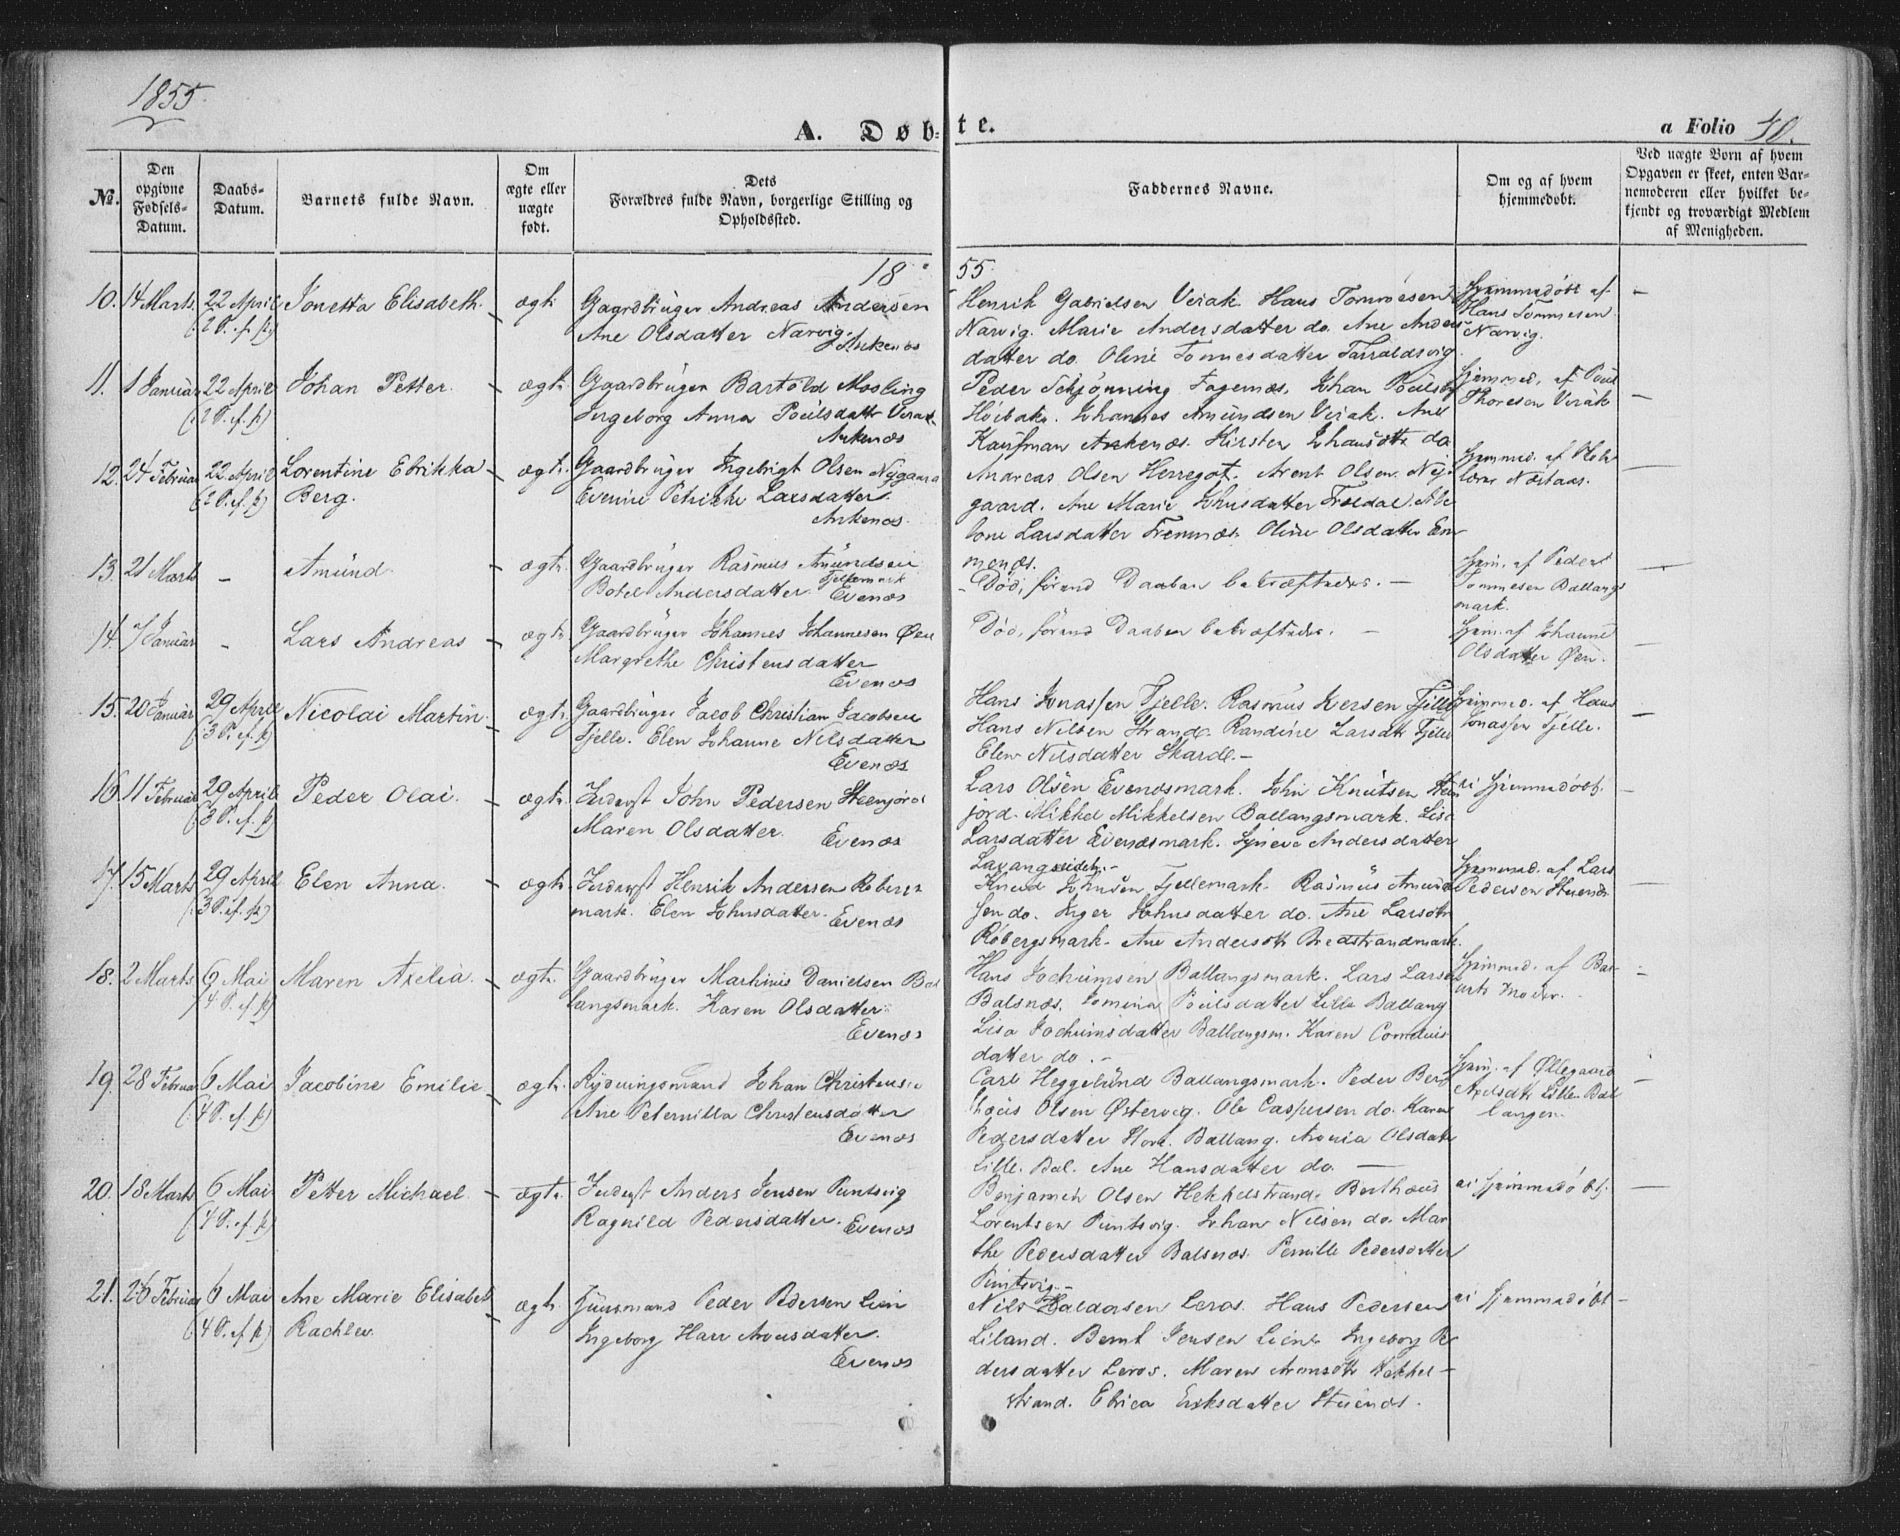 1855.
A. Døbte.
a Folio 40.
No.
Den opgivne Fødsels-Datum.
Daabs-Datum.
Barnets fulde Navn.
Om ægte eller uægte født.
Dets Forældres fulde Navn, borgerlige Stilling og Opholdssted.
Faddernes Navne.
Om og af hvem hjemmedøbt.
Ved uægte Børn af hvem Opgaven er skeet, enten Barnemoderen eller hvilket bekjendt og troværdigt Medlem af Menigheden.
1855
10. 14 Marts 22 April Jonetta Elisabeth. ægte Gaardbruger Andreas Andersen
(2 S. ef. p) Ane Olsdatter Narvig. Ankenæs
Henrik Gabrielsen Verak. Hans Tommesen
Narvig. Marie Andersdatter do. Ane Anders
datter do. Oline Tommesdatter Tarraldsvig
Hjemmedøbt af
Hans Tommesen
Narvig.
11. 1 Januar 22 April Johan Petter. ægte Gaardbruger Bartold Mosling
(2 S. ef. p) Ingeborg Anna Poulsdatter Verak.
Ankenæs
Peder Schjønning Fagernæs. Johan Poulsen
Johannes Amundsen Verak. Ane
Kaufman Ankenæs. Kirsten do
Hjemmed. af Poul
Thoresen Verak
12. 24 Februar 22 April Lorentine Ebrikka ægte Gaardbruger Ingebrigt Olsen Nygaard
(2 S. ef. p) Berg. Petrikke Larsdatter.
Ankenæs
Andreas Olsen Herregot. Arent Olsen Ny-
gaard. Ane Marie Johnsdatter
lone Larsdatter Fremnæs. Oline Olsdatter Em
menæs.
Hjemmed. af
13. 21 Marts - Amund. ægte Gaardbruger Rasmus Amundsen
Fjellemark
Botel Andersdatter. Evenæs
- Død, førend Daaben bekræftedes. -
Hjem. af Peder
Tommesen Ballangs
mark.
14. 7 Januar - Lars Andreas ægte Gaardbruger Johannes Johannesen Øen
Margrethe Christensdatter
Evenæs
Død, førend Daaben bekræftedes. -
Hjem. af Johanne
Olsdatter Øen.
15. 20 Januar 29 April Nicolai Martin. ægte Gaardbruger Jacob Christian Jacobsen
(3 S. ef. p) Fjelle. Elen Johanne Nilsdatter
Evenæs
Hans Jonassen Fjelle. Rasmus Iversen Fjelle
Hans Nilsen Strand. Randine Larsdtr Fjelle
Elen Nilsdatter Skardl. -
Hjemmed. af Hans
Jonassen Fjelle.
16 11 Februar 29 April Peder Olai. ægte Inderst John Pedersen Steenjord
(3 S. ef. p) Maren Olsdatter. Evenæs
Lars Olsen Evenæsmark. John Knutsen Steen
jord. Mikkel Mikkelsen Ballangsmark. Lise
Larsdatter Evenæsmark. Synneve Andersdatter
Lavangseidet. -
ei Hjemmedøbt.
17. 15 Marts 29 April Elen Anna. ægte Inderst Henrik Andersen Robergs
(3 S. ef. p) mark. Elen Johnsdatter. Evenæs
Knud Johnsen Fjellemark. Rasmus Amund
sen do. Inger Johnsdatter do. Ane Larsdtr
Robergsmark. Ane Andersdtr Bredstrandmark.
Hjemmed. af Lars
Pedersen Stuenæs
18. 2 Marts 6 Mai Maren Axelia. ægte Gaardbruger Martinus Danielsen Bal
(4 S. ef. p) langsmark. Karen Olsdatter.
Evenæs
Hans Jochumsen Ballangsmark. Lars Larsen
Balsnæs. Jomina Poulsdatter Lille Ballang
Lisa Jochumsdatter Ballangsm. Karen Cornelius
datter do. -
Hjemmed. af Bar
nets Moder.
19. 28 Februar 6 Mai Jacobine Emilie ægte Rydningsmand Johan Christense
(4 S. ef. p) Ane Peternilla Christensdatter
Evenæs
Carl Heggelund Ballangsmark. Peder Berg
Olsen Østervig. Ole Caspersen do. Karen
Pedersdatter Store Ballang. Olsdatter
Lille Bal. Ane Hansdatter do. -
Hjem. af Øllegaard
Axelsdtr Lille Bal
langen.
20. 18 Marts 6 Mai Petter Michael. ægte Inderst Anders Jensen Puntsvig
(4 S. ef. p) Ragnild Pedersdatter. Evenæs
Benjamin Olsen Hekkelstrand. Berthæus
Lorentsen Puntsvig. Johan Nilsen do. Mar
the Pedersdatter Balsnæs. Pernille Pedersdatter
Puntsvig. -
ei Hjemmedøbt.
21. 26 Februar 6 Mai Ane Marie Elisabet ægte Huusmand Peder Pedersen Lien
(4 S. ef. p) Rachlev Ingeborg Harr Arensdatter.
Evenæs
Nils Haldorsen Leros. Hans Pedersen
Liland. Bernt Jensen Lien. Ingeborg Pe
dersdatter Leros. Maren Aronsdtr Hekkel-
strand. Ebrica Eriksdatter Stuenæs.
ei Hjemmedøbt